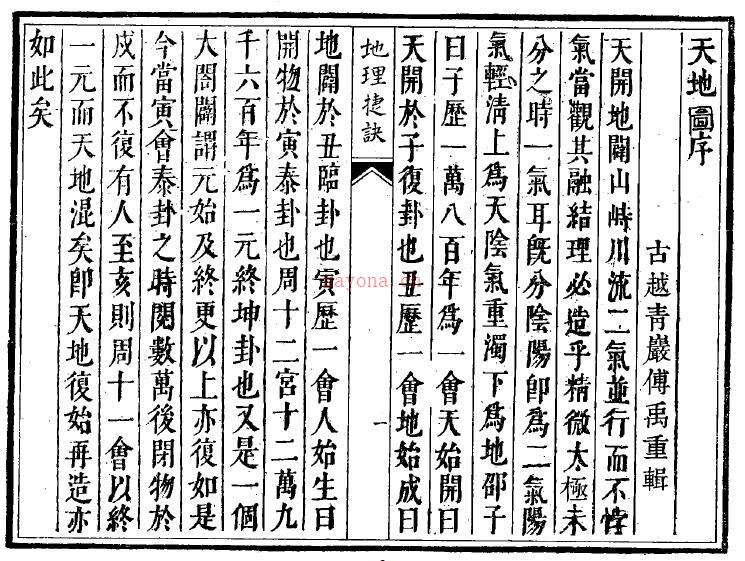 天地圖序
古越青巖傅禹重輯
天開地闢山峙川流二氣並行而不悖
氣當觀其融結理必造乎精微太極未
分之時一氣耳旣分陰陽卽爲二氣陽
氣輕清上爲天陰氣重濁下爲地邵子
曰子歷一萬八百年爲一會天始開曰
天開於子復卦也丑歷一會地始成曰
地理捷訣
一
地闢於丑臨卦也寅歷一會人始生曰
開物於寅泰卦也周十二宮十二萬九
千六百年爲一元終坤卦也又是一個
大闔闢謂元始及終更以上亦復如是
今當寅會泰卦之時閱數萬後閉物於
戍而不復有人至亥則周十一會以終
一元而天地混矣卽天地復始再造亦
如此矣
nayona.cn